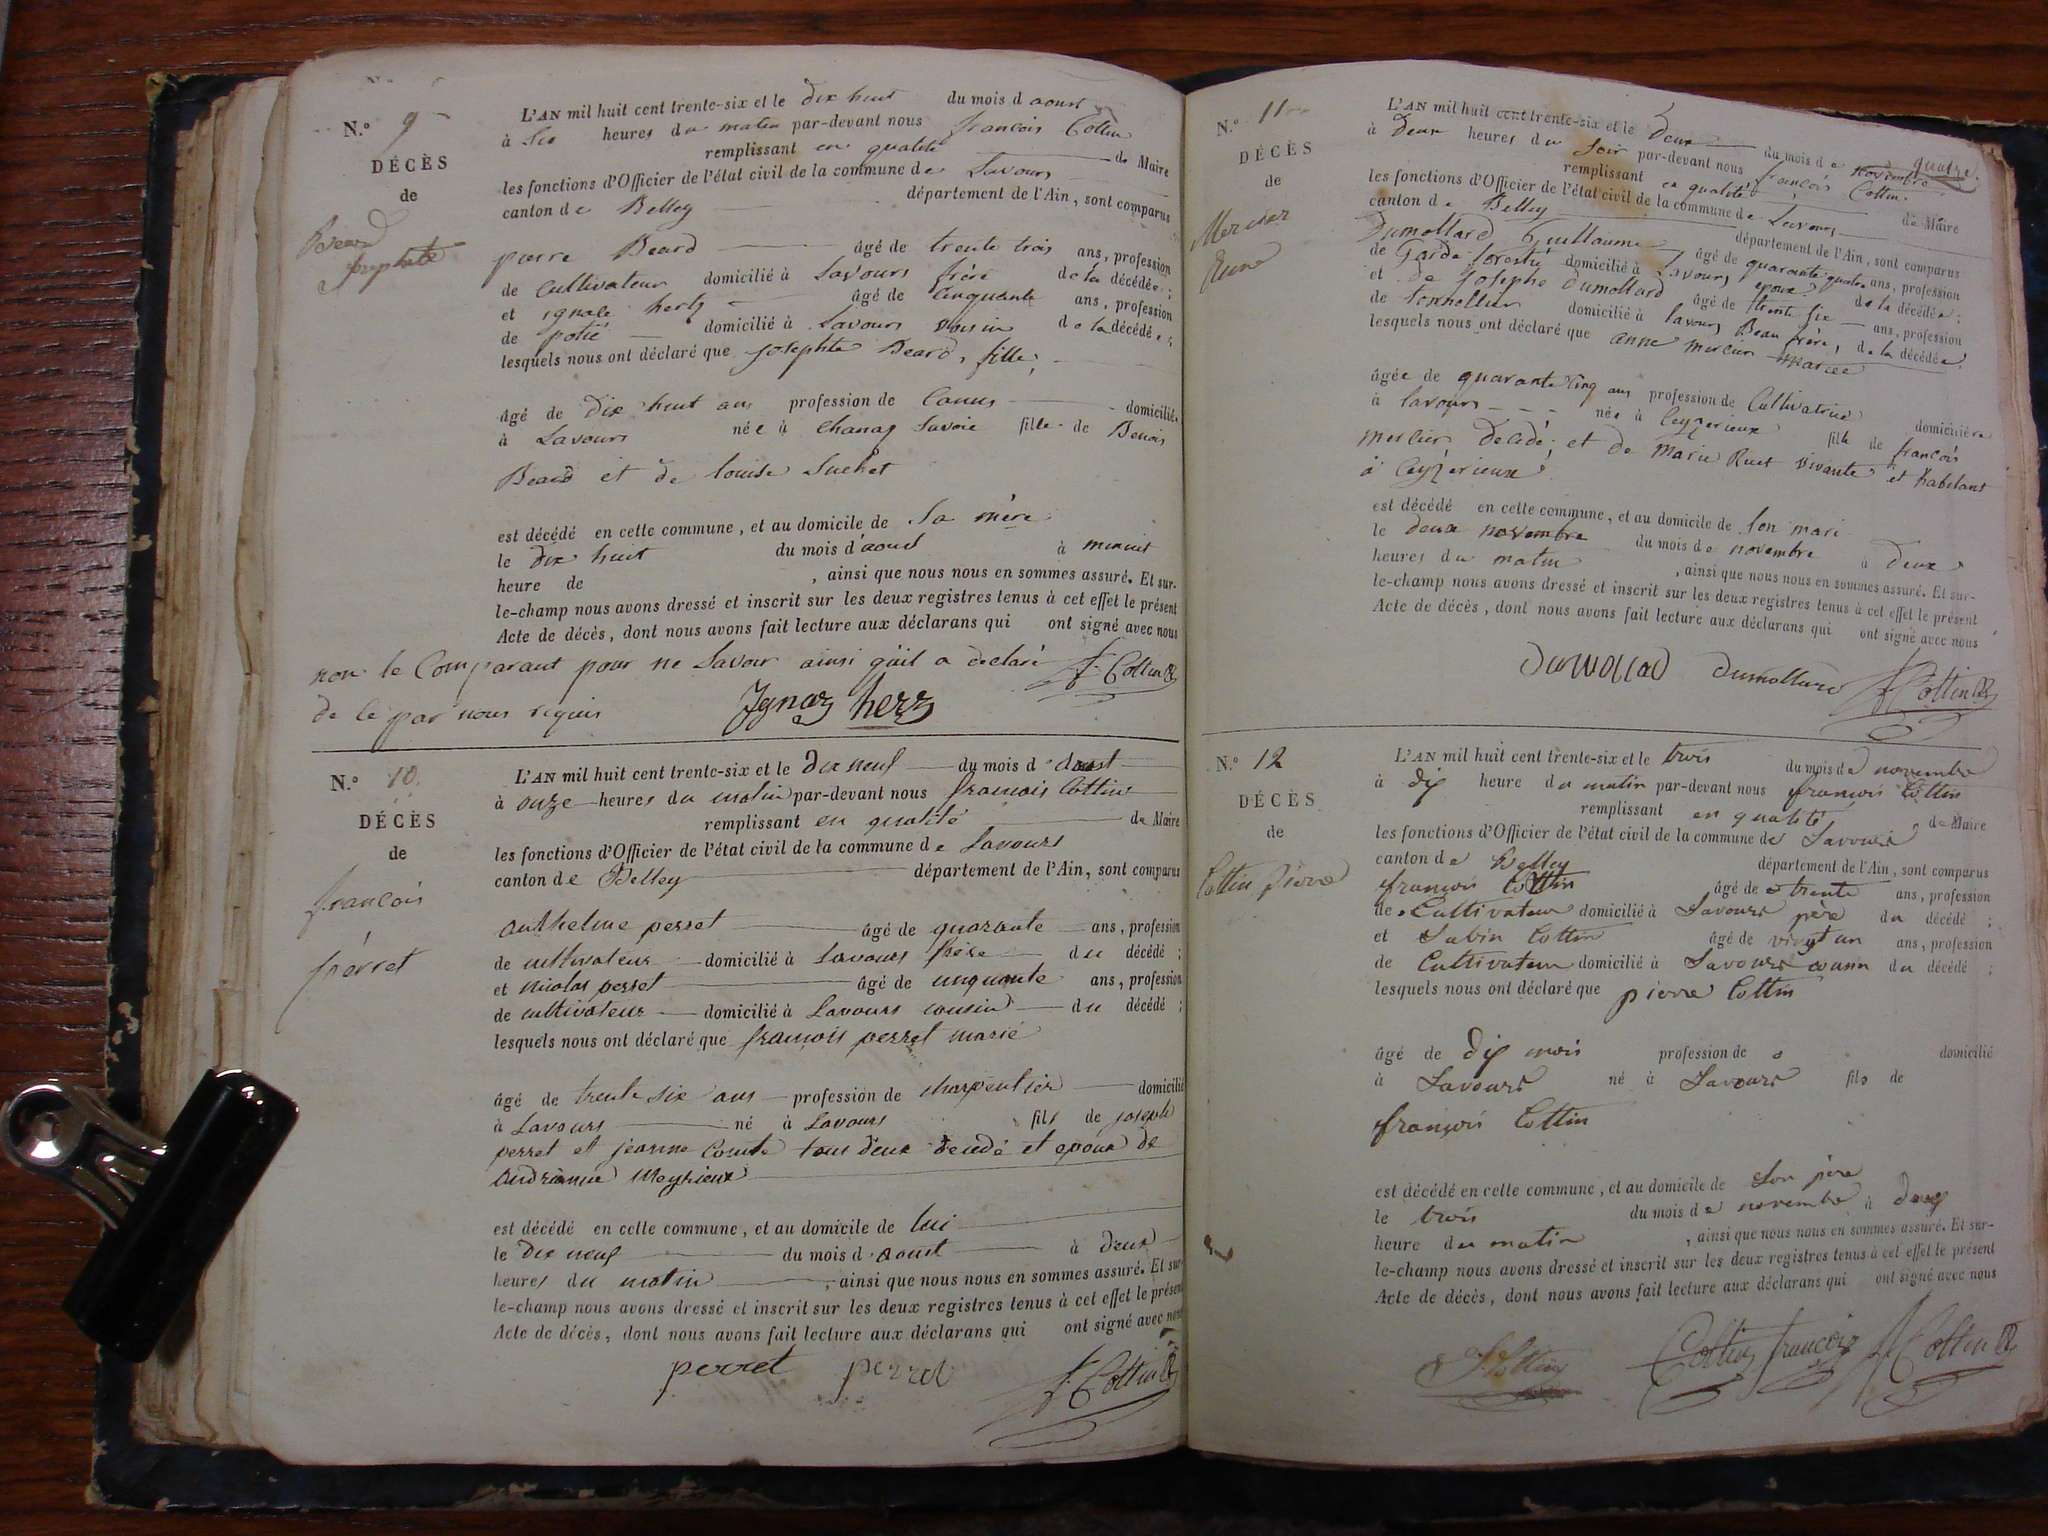 N.° 9
DÉCÈS
de
Beard
Josephte
L'AN mil huit cent trente-six et le dix huit du mois d aoust
à Six heures du matin par-devant nous françois Cottin
remplissant en qualité de Maire
les fonctions d'Officier de l'état civil de la commune de Lavours
canton de Belley département de l'Ain, sont comparus
pierre Beard âgé de trente trois ans, profession
de Cultivateur domicilié à Lavours frère de la décédée ;
et ignace hertz âgé de Cinquante ans, profession
de potié domicilié à Lavours voisin de la décédée ;
lesquels nous ont déclaré que josephte Beard, fille,
âgé de dix huit ans profession de domiciliée
à Lavours née à Chanaz Savoie fille de Benois
Beard et de louise Suchet
est décédé en cette commune, et au domicile de Sa mère
le dix huit du mois d'aoust à minuit
heure de , ainsi que nous nous en sommes assuré. Et sur-
le-champ nous avons dressé et inscrit sur les deux registres tenus à cet effet le présent
Acte de décès, dont nous avons fait lecture aux déclarans qui ont signé avec nous
non le Comparant pour ne Savoir ainsi qu'il a declaré f. Cottin
de ce par nous requis Ignaz herz
N.° 10.
DÉCÈS
de
françois
perret
L'AN mil huit cent trente-six et le dix neuf du mois d aoust
à onze heures du matin par-devant nous francois Cottin
remplissant en qualité de Maire
les fonctions d'Officier de l'état civil de la commune de Lavours
canton de Belley département de l'Ain, sont comparus
anthelme perret âgé de quarante ans, profession
de cultivateur domicilié à Lavours frère du décédé ;
et nicolas perret âgé de cinquante ans, profession
de cultivateur domicilié à Lavours cousin du décédé ;
lesquels nous ont déclaré que francois perret marié
âgé de trente six ans profession de charpentier domicilié
à Lavours né à Lavours fils de joseph
perret et jeanne Comte tous deux decedé et epoux de
andrianne Meyrieux
est décédé en cette commune, et au domicile de lui
le dix neuf du mois d'aoust à deux
heures du matin , ainsi que nous nous en sommes assuré. Et sur-
le-champ nous avons dressé et inscrit sur les deux registres tenus à cet effet le présent
Acte de décès, dont nous avons fait lecture aux déclarans qui ont signé avec nous
perret perret f. Cottin
N.° 11
DÉCÈS
de
Mercier
Anne
L'AN mil huit cent trente-six et le deux du mois de novembre quatre
à Deux heures du Soir par-devant nous françois Cottin
remplissant en qualité de Maire
les fonctions d'Officier de l'état civil de la commune de Lavours
canton de Belley département de l'Ain, sont comparus
Dumollard Guillaume âgé de quarante quatre ans, profession
de Garde forestié domicilié à Lavours epoux de la décédée ;
et de Josephe Dumollard âgé de trente six ans, profession
de tonnellier domicilié à Lavours Beau frère, de la décédée ;
lesquels nous ont déclaré que anne mercier mariée
âgée de quarante cinq ans profession de Cultivatrice domiciliée
à lavours née à Ceyzerieux fille de françois
mercier décédé, et de marie Ruet vivante et habitant
à Ceyzerieux
est décédé en cette commune, et au domicile de Son mari
le deux novembre du mois de novembre à deux
heures du matin , ainsi que nous nous en sommes assuré. Et sur-
le-champ nous avons dressé et inscrit sur les deux registres tenus à cet effet le présent
Acte de décès, dont nous avons fait lecture aux déclarans qui ont signé avec nous
Dumollard Dumollard f. Cottin
N.° 12
DÉCÈS
de
Cottin pierre
L'AN mil huit cent trente-six et le trois du mois de novembre
à dix heure du matin par-devant nous françois Cottin
remplissant en qualité de Maire
les fonctions d'Officier de l'état civil de la commune de Lavours
canton de Belley département de l'Ain, sont comparus
françois Cottin âgé de trente ans, profession
de Cultivateur domicilié à Lavours père du décédé ;
et Sabin Cottin âgé de vingt un ans, profession
de Cultivateur domicilié à Lavours cousin du décédé ;
lesquels nous ont déclaré que pierre Cottin
âgé de dix mois profession de domicilié
à Lavours né à Lavours fils de
françois Cottin
est décédé en cette commune, et au domicile de Son père
le trois du mois de novembre à deux
heure du matin , ainsi que nous nous en sommes assuré. Et sur-
le-champ nous avons dressé et inscrit sur les deux registres tenus à cet effet le présent
Acte de décès, dont nous avons fait lecture aux déclarans qui ont signé avec nous
S Cottin Cottin françois f. Cottin